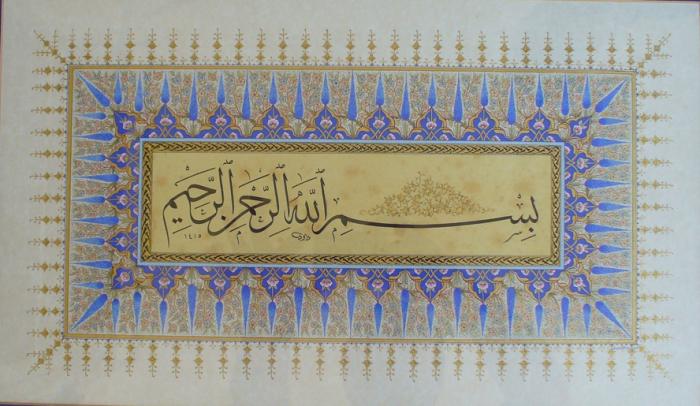 بِسْمِ اللّٰهِ الرَّحْمٰنِ الرَّحِيمِ
١٤١٥